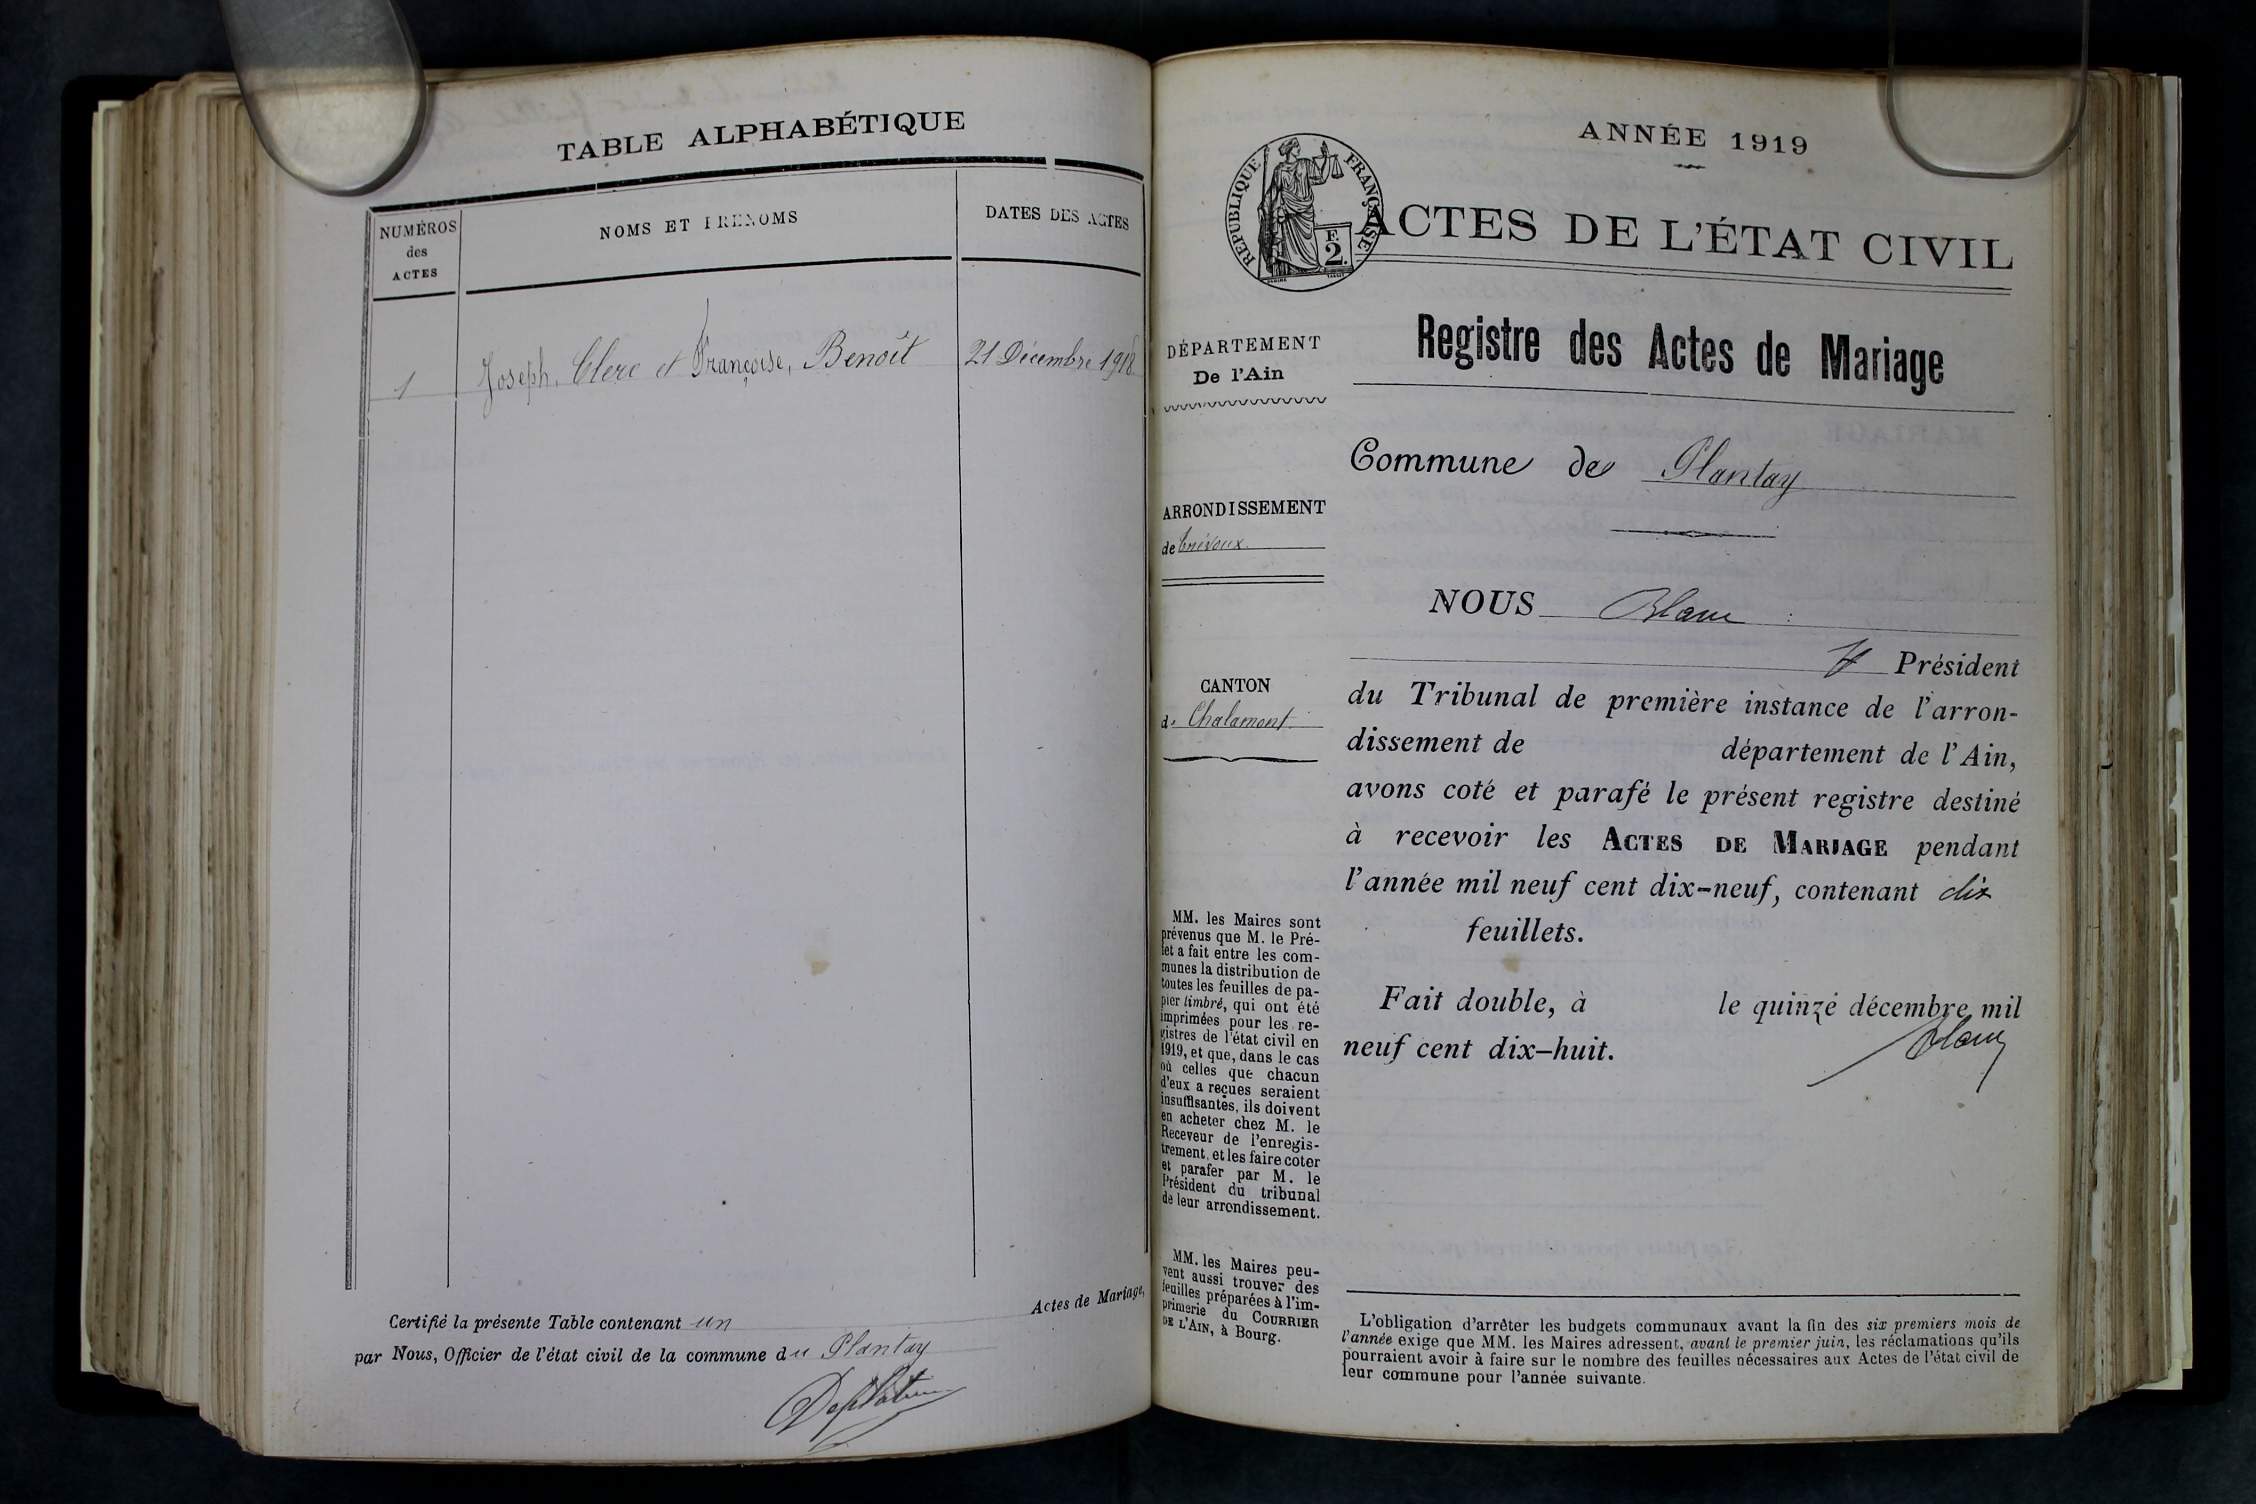 TABLE ALPHABÉTIQUE
NUMÉROS
des
ACTES
NOMS ET PRÉNOMS
DATES DES ACTES
1
Joseph, Clerc et Françoise, Benoît
21 Décembre 1918
Certifié la présente Table contenant un
Actes de Mariage,
par Nous, Officier de l'état civil de la commune du Plantay
ANNÉE 1919
RÉPUBLIQUE FRANÇAISE
F.
2.
ACTES DE L'ÉTAT CIVIL
Registre des Actes de Mariage
DÉPARTEMENT
De l'Ain
Commune de Plantay
ARRONDISSEMENT
de Trévoux
NOUS Blanc
Président
CANTON
de Chalamont
du Tribunal de première instance de l'arron-
dissement de département de l'Ain,
avons coté et parafé le présent registre destiné
à recevoir les ACTES DE MARIAGE pendant
l'année mil neuf cent dix-neuf, contenant dix
feuillets.
Fait double, à le quinze décembre mil
neuf cent dix-huit.
Blanc
MM. les Maires sont
prévenus que M. le Pré-
fet a fait entre les com-
munes la distribution de
toutes les feuilles de pa-
pier timbré, qui ont été
imprimées pour les re-
gistres de l'état civil en
1919, et que, dans le cas
où celles que chacun
d'eux a reçues seraient
insuffisantes, ils doivent
en acheter chez M. le
Receveur de l'enregis-
trement, et les faire coter
et parafer par M. le
Président du tribunal
de leur arrondissement.
MM. les Maires peu-
vent aussi trouver des
feuilles préparées à l'im-
primerie du COURRIER
DE L'AIN, à Bourg.
L'obligation d'arrêter les budgets communaux avant la fin des six premiers mois de
l'année exige que MM. les Maires adressent, avant le premier juin, les réclamations qu'ils
pourraient avoir à faire sur le nombre des feuilles nécessaires aux Actes de l'état civil de
leur commune pour l'année suivante.